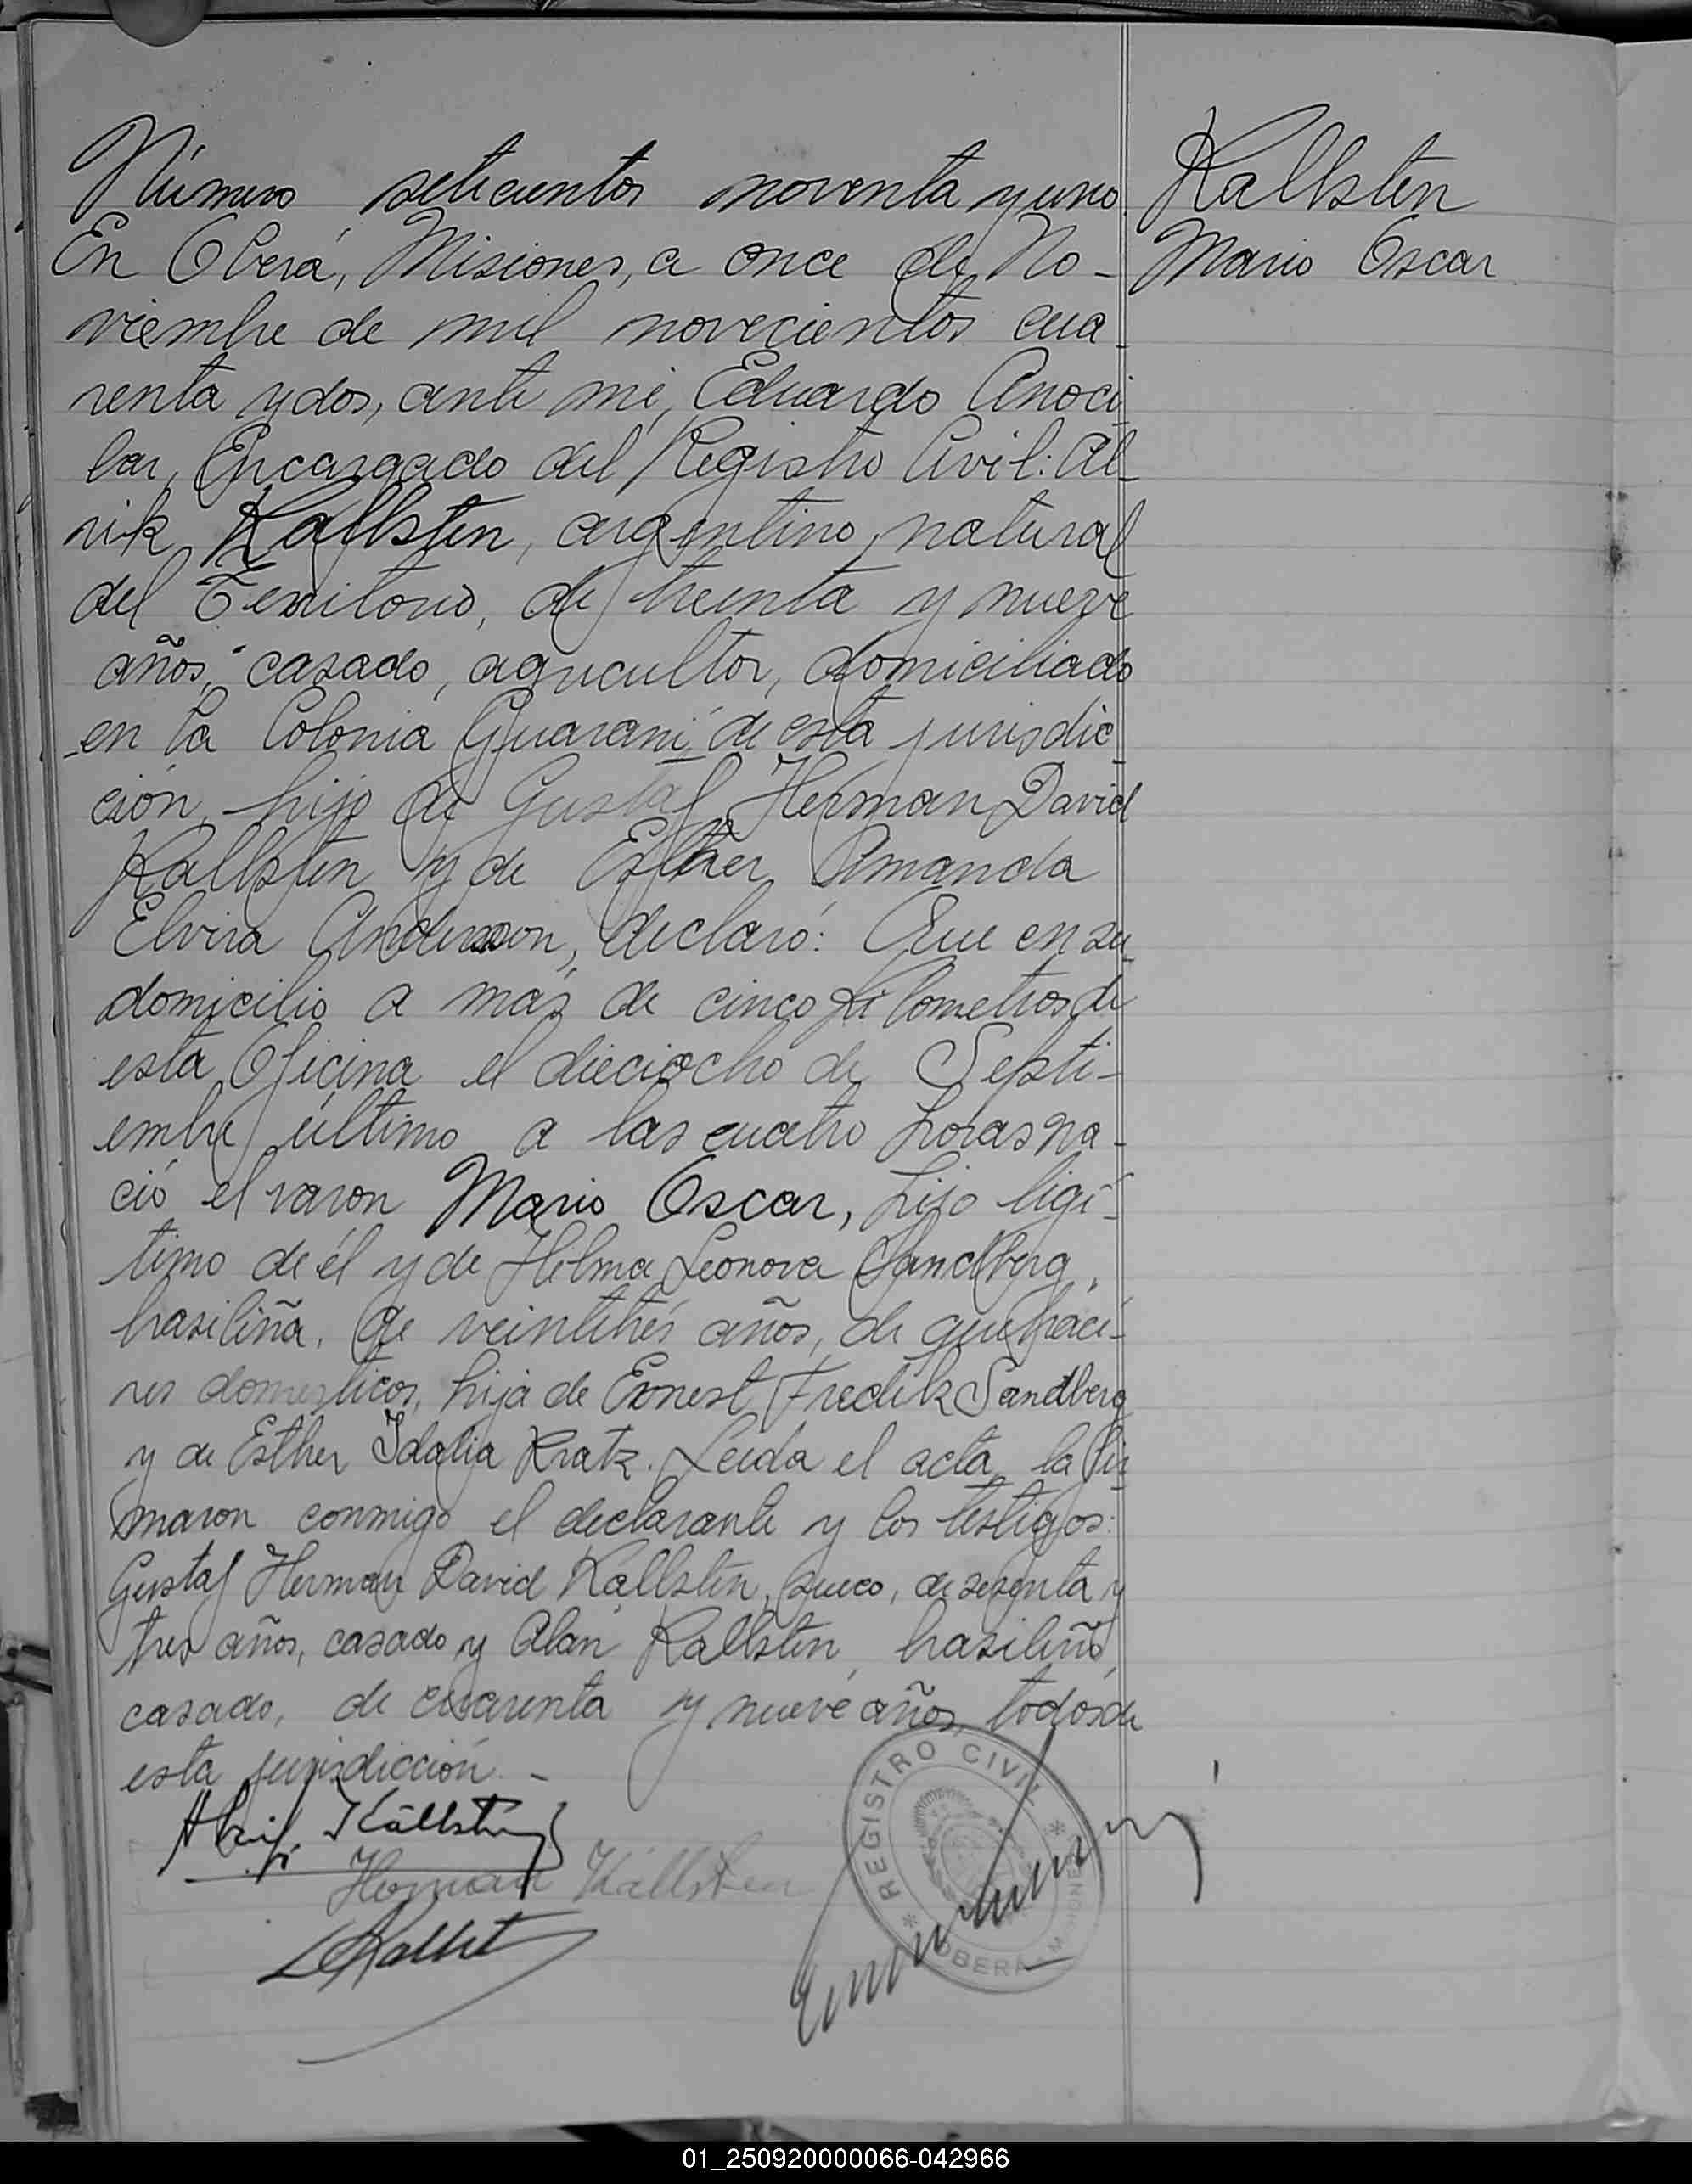 Número setecientos noventa y uno
Kallsten
En Oberá, Misiones, a once de No-
Mario Oscar
viembre de mil novecientos cua-
renta y dos, ante mi, Eduardo Anoci-
bar, Encargado del Registro Civil: Al-
rik Kallsten, argentino, natural
del Territorio, de treinta y nueve
años, casado, agricultor, domiciliado
en la Colonia Guaraní de esta jurisdic-
ción, hijo de Gustaf Herman David
Kallsten y de Esther Amanda
Elvira Anderson, declaró: Que en su
domicilio a más de cinco kilometros de
esta Oficina el dieciocho de Septi-
embre último a las cuatro horas na-
ció el varon Mario Oscar, hijo ligi-
timo de él y de Hilma Leonora Sandberg,
brasiliña, de veintitrés años, de quehace-
res domesticos, hija de Ernest Fredik Sandberg
y de Esther Idalia Kratz. Leida el acta, la fir-
maron conmigo el declarante y los testigos:
Gustaf Herman David Kallsten, sueco, de sesenta y
tres años, casado y Alan Kallsten, brasileño,
casado, de cuarenta y nueve años, todos de
esta jurisdicción. -
Alrik Källsten
Herman Källsten
REGISTRO CIVIL
OBERÁ
01_250920000066-042966